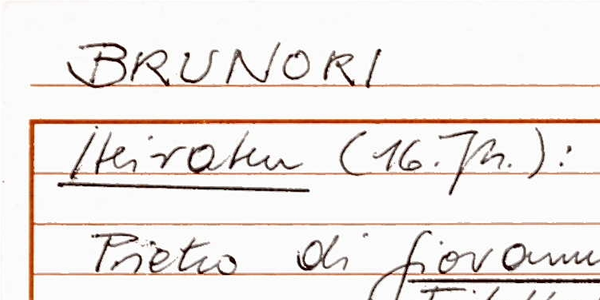 BRUNORI
Heiraten (16. Jh.):
Pietro di